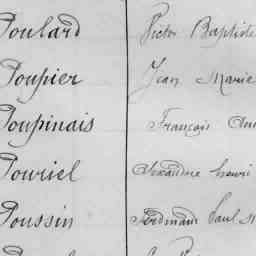 Poulard Victor Baptiste
Poupier Jean Marie
Poupinais François
Pouriel Alexandre Henri
Poussin Ferdinand Paul